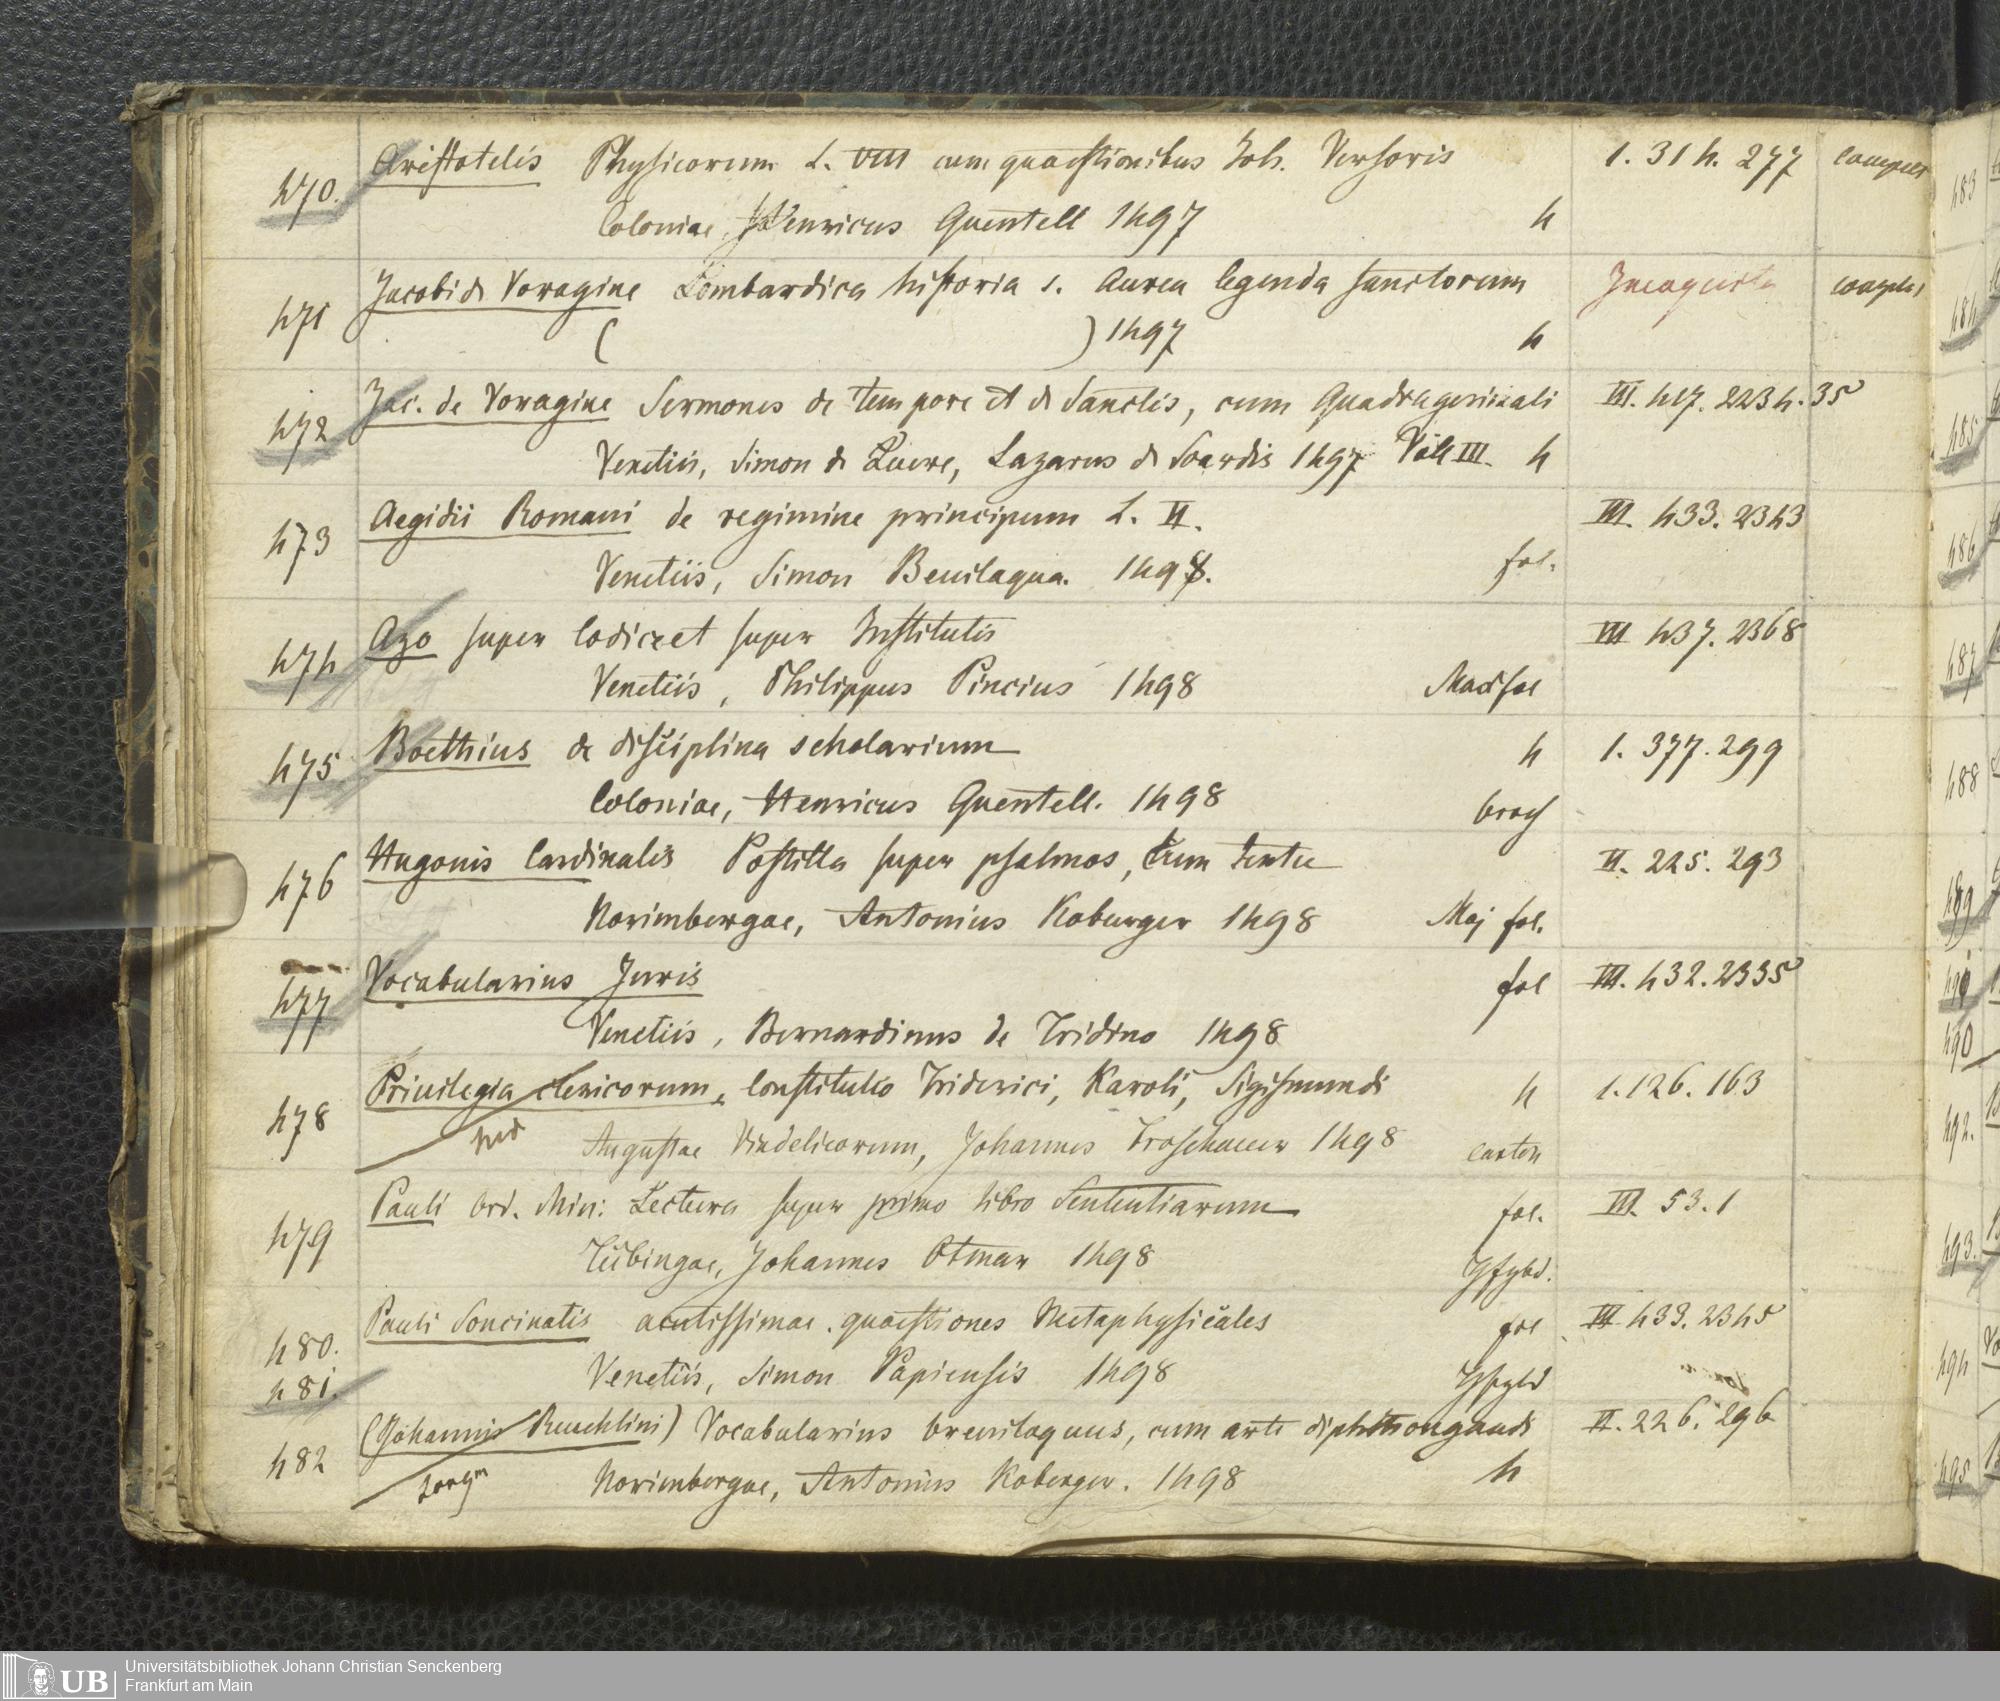 470. Aristotelis Physicorum L. VIII cum quaestionibus Joh. Versoris 1. 314. 277
Coloniae, Henricus Quentell 1497 4
471 Jacobi de Voragine Lombardica historia s. Aurea legenda sanctorum
( ) 1497 4
472 Jac. de Voragine Sermones de tempore et de Sanctis, cum Quadragesimali III. 417. 2234. 35
Venetiis, Simon de Luere, Lazarus de Soardis 1497 Vol III. 4
473 Aegidii Romani de regimine principum L. II. III. 433. 2343
Venetiis, Simon Beuilaqua. 1498. fol.
474 Azo super Codice et super Institutis III 437. 2368
Venetiis, Philippus Pincius 1498 fol
475 Boethius de disciplina scholarium 4 1. 377. 299
Coloniae, Henricus Quentell. 1498 broch
476 Hugonis Cardinalis Postilla super psalmos, cum textu II. 225. 293
Norimbergae, Antonius Koburger 1498 Maj fol.
477 Vocabularius Juris fol III. 432. 2335
Venetiis, Bernardinus de Tridino 1498
478 Priuilegia clericorum, Constitutio Friderici, Karoli, Sigismundi 4 1. 126. 163
Augustae Vindelicorum, Johannes Froschauer 1498 carton
479 Pauli Ord. Min: Lectura super primo libro Sententiarum fol. III. 53. 1
Tübingae, Johannes Otmar 1498
480. Pauli Soncinatis acutissimae quaestiones Metaphysicales fol III 433. 2345
481. Venetiis, Simon Papiensis 1498
482 (Johannis Reuchlini) Vocabularius breuiloquus, cum arte diphthongandi II. 226. 296
Norimbergae, Antonius Koberger. 1498 4
483
484
485
486
487
488
489
490
492.
493.
494
495
UB
Universitätsbibliothek Johann Christian Senckenberg
Frankfurt am Main